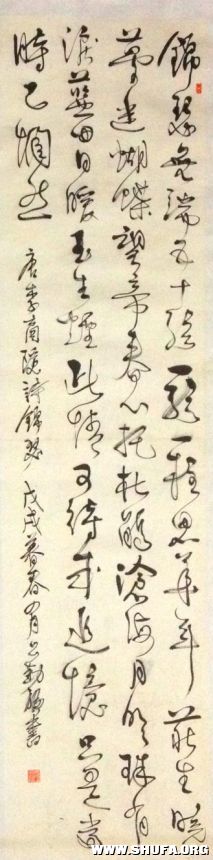 錦瑟無端五十弦一弦一柱思華年莊生曉
夢迷蝴蝶望帝春心托杜鵑滄海月明珠有
淚藍田日暖玉生煙此情可待成追憶只是當
時已惘然
唐李商隱詩錦瑟 戊戌暮春 書
WWW.SHUFA.ORG